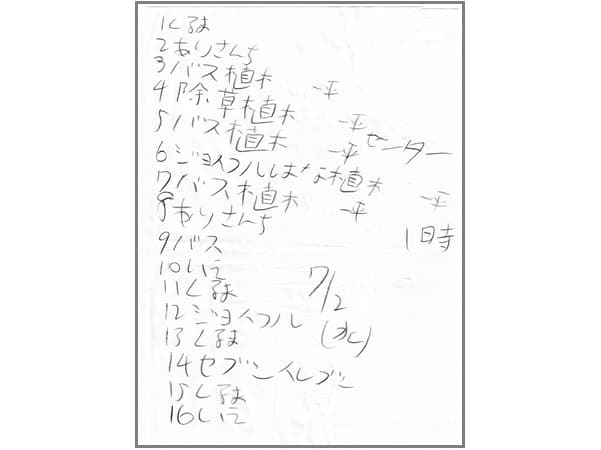 1くるま
2ありさんち
3バス植木 一平
4除草植木 一平センター
5バス植木 一平
6ジョイフルはな植木 一平
7バス植木 一平
8ありさんち 1時
9バス
10いえ
11くるま
12ジョイフル
13くるま
14セブンイレブン
15くるま
16いえ
7/2
(水)